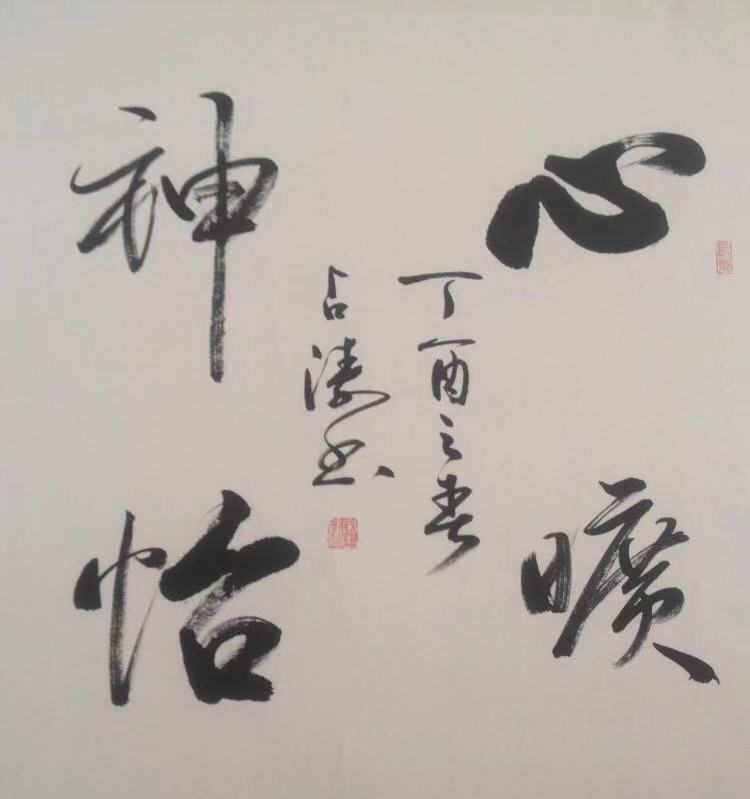 心曠
神怡
丁酉之春
占涛书